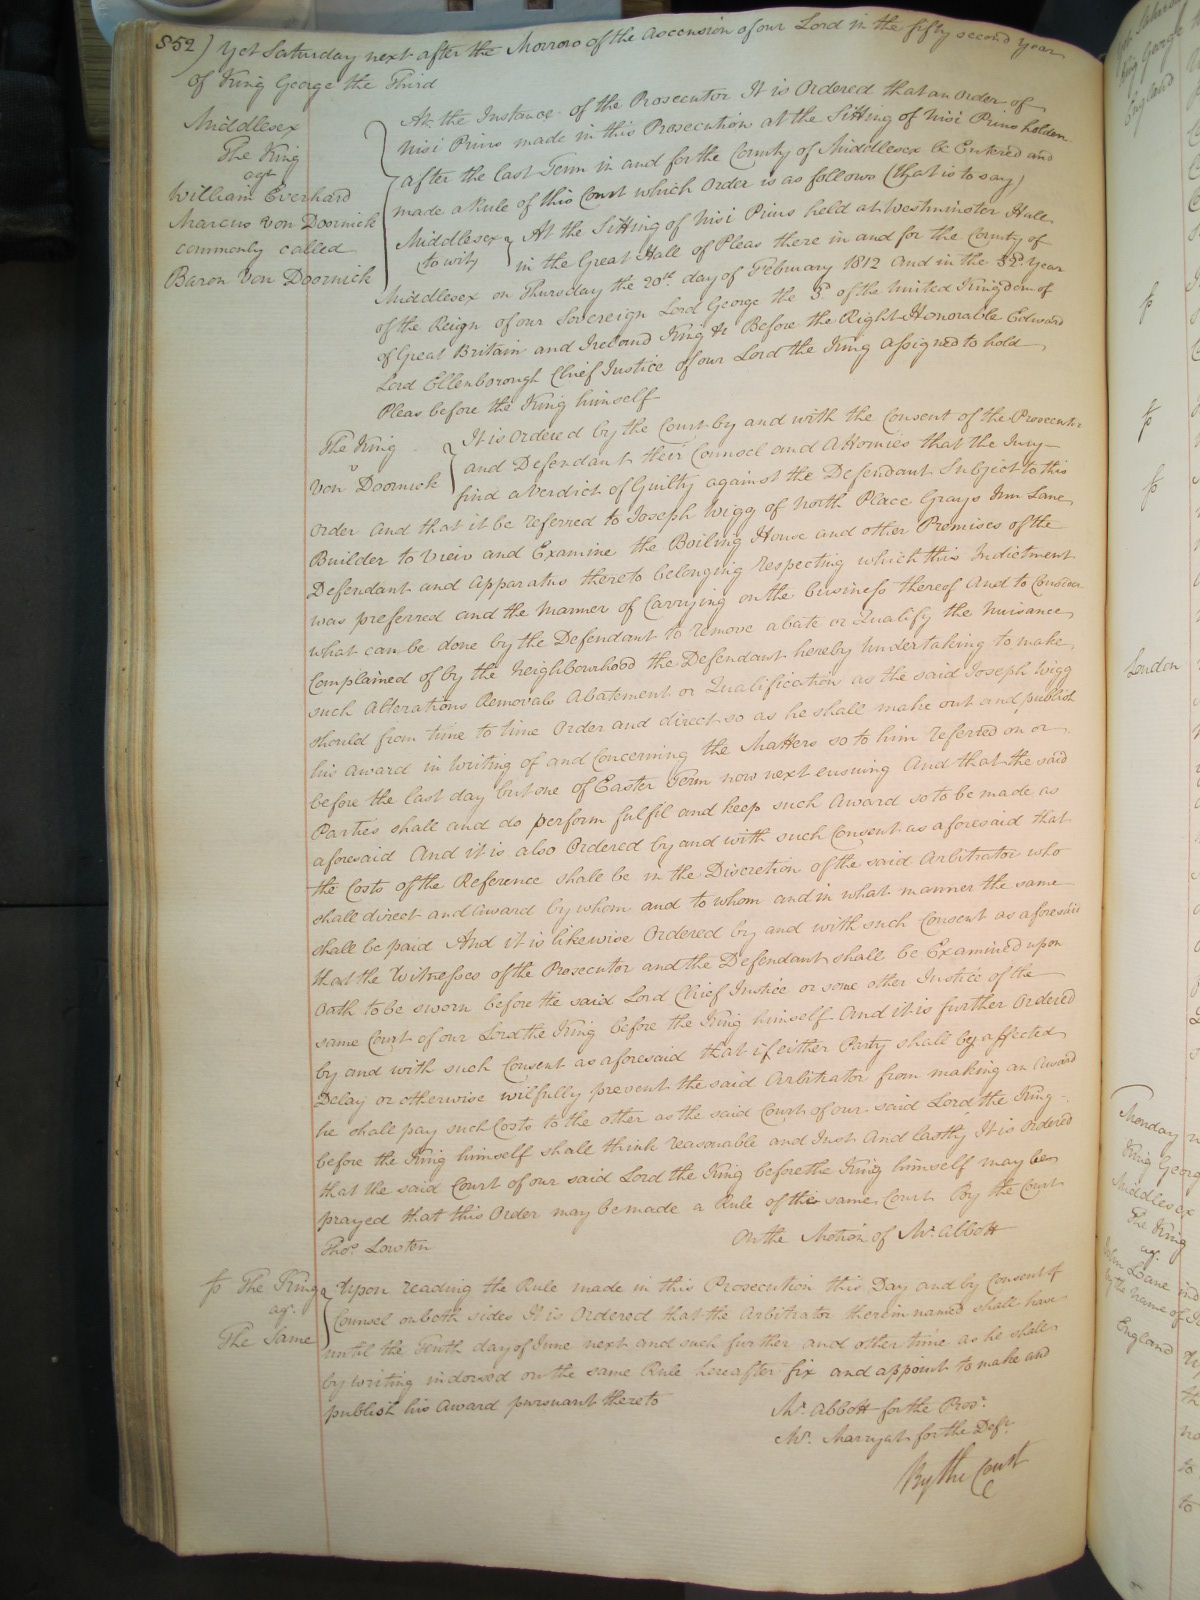 552) Yet Saturday next after the Morrow of the Ascension of our Lord in the fifty second year
of King George the Third
Middlesex
The King
agt
William Everhard
Marcus von Doornick
commonly called
Baron von Doornick
At the Instance of the Prosecutor It is Ordered that an order of
Nisi Prius made in this Prosecution at the Sitting of Nisi Prius holden
after the last Term in and for the County of Middlesex be Entered and
made a Rule of this Court which Order is as follows (that is to say)
Middlesex At the Sitting of Nisi Prius held at Westminster Hall
to wit in the Great Hall of Pleas there in and for the County of
Middlesex on Thursday the 20th day of February 1812 and in the 52d Year
of the Reign of our Sovereign Lord George the 3d of the United Kingdom of
of Great Britain and Ireland King &c Before the Right Honorable Edward
Lord Ellenborough Chief Justice of our Lord the King assigned to hold
Pleas before the King himself
The King
v
Von Doornick
It is Ordered by the Court by and with the Consent of the Prosecutor
and Defendant their Counsel and Attornies that the Jury
find a Verdict of Guilty against the Defendant Subject to this
Order and that it be referred to Joseph Wigg of North Place Grays Inn Lane
Builder to View and Examine the Boiling House and other Premises of the
Defendant and apparatus thereto belonging respecting which this Indictment
was preferred and the Manner of Carrying on the business thereof And to Consider
what can be done by the Defendant to remove abate or Qualify the Nuisance
Complained of by the Neighbourhood the Defendant hereby Undertaking to make
such Alterations Removals Abatement or Qualification as the said Joseph Wigg
should from time to time Order and direct so as he shall make out and publish
his award in Writing of and Concerning the Matters so to him referred on or
before the last day but one of Easter Term now next ensuing And that the said
Parties shall and do perform fulfil and keep such Award so to be made as
aforesaid And it is also Ordered by and with such Consent as aforesaid that
the Costs of the Reference shall be in the Discretion of the said Arbitrator who
shall direct and award by whom and to whom and in what manner the same
shall be paid And it is likewise Ordered by and with such Consent as aforesaid
that the Witnesses of the Prosecutor and the Defendant shall be Examined upon
Oath to be sworn before the said Lord Chief Justice or some other Justice of the
same Court of our Lord the King before the King himself And it is further Ordered
by and with such Consent as aforesaid that if either Party shall by affected
Delay or otherwise wilfully prevent the said Arbitrator from making an Award
he shall pay such Costs to the other as the said Court of our said Lord the King
before the King himself shall think reasonable and Just And lastly It is Ordered
that the said Court of our said Lord the King before the King himself may be
prayed that this Order may be made a Rule of the same Court By the Court
Thos Lowten On the Motion of Mr. Abbott
The King
agt
The Same
Upon reading the Rule made in this Prosecution this Day and by Consent of
Counsel on both sides It is Ordered that the Arbitrator therein named shall have
until the Tenth day of June next and such further and other time as he shall
by writing indorsed on the same Rule hereafter fix and appoint to make and
publish his Award pursuant thereto
Mr. Abbott for the Pros.
Mr. Marryat for the Deft.
By the Court
England
London
Monday
King George
Middlesex
The King
agt
Lane
by the name of
England